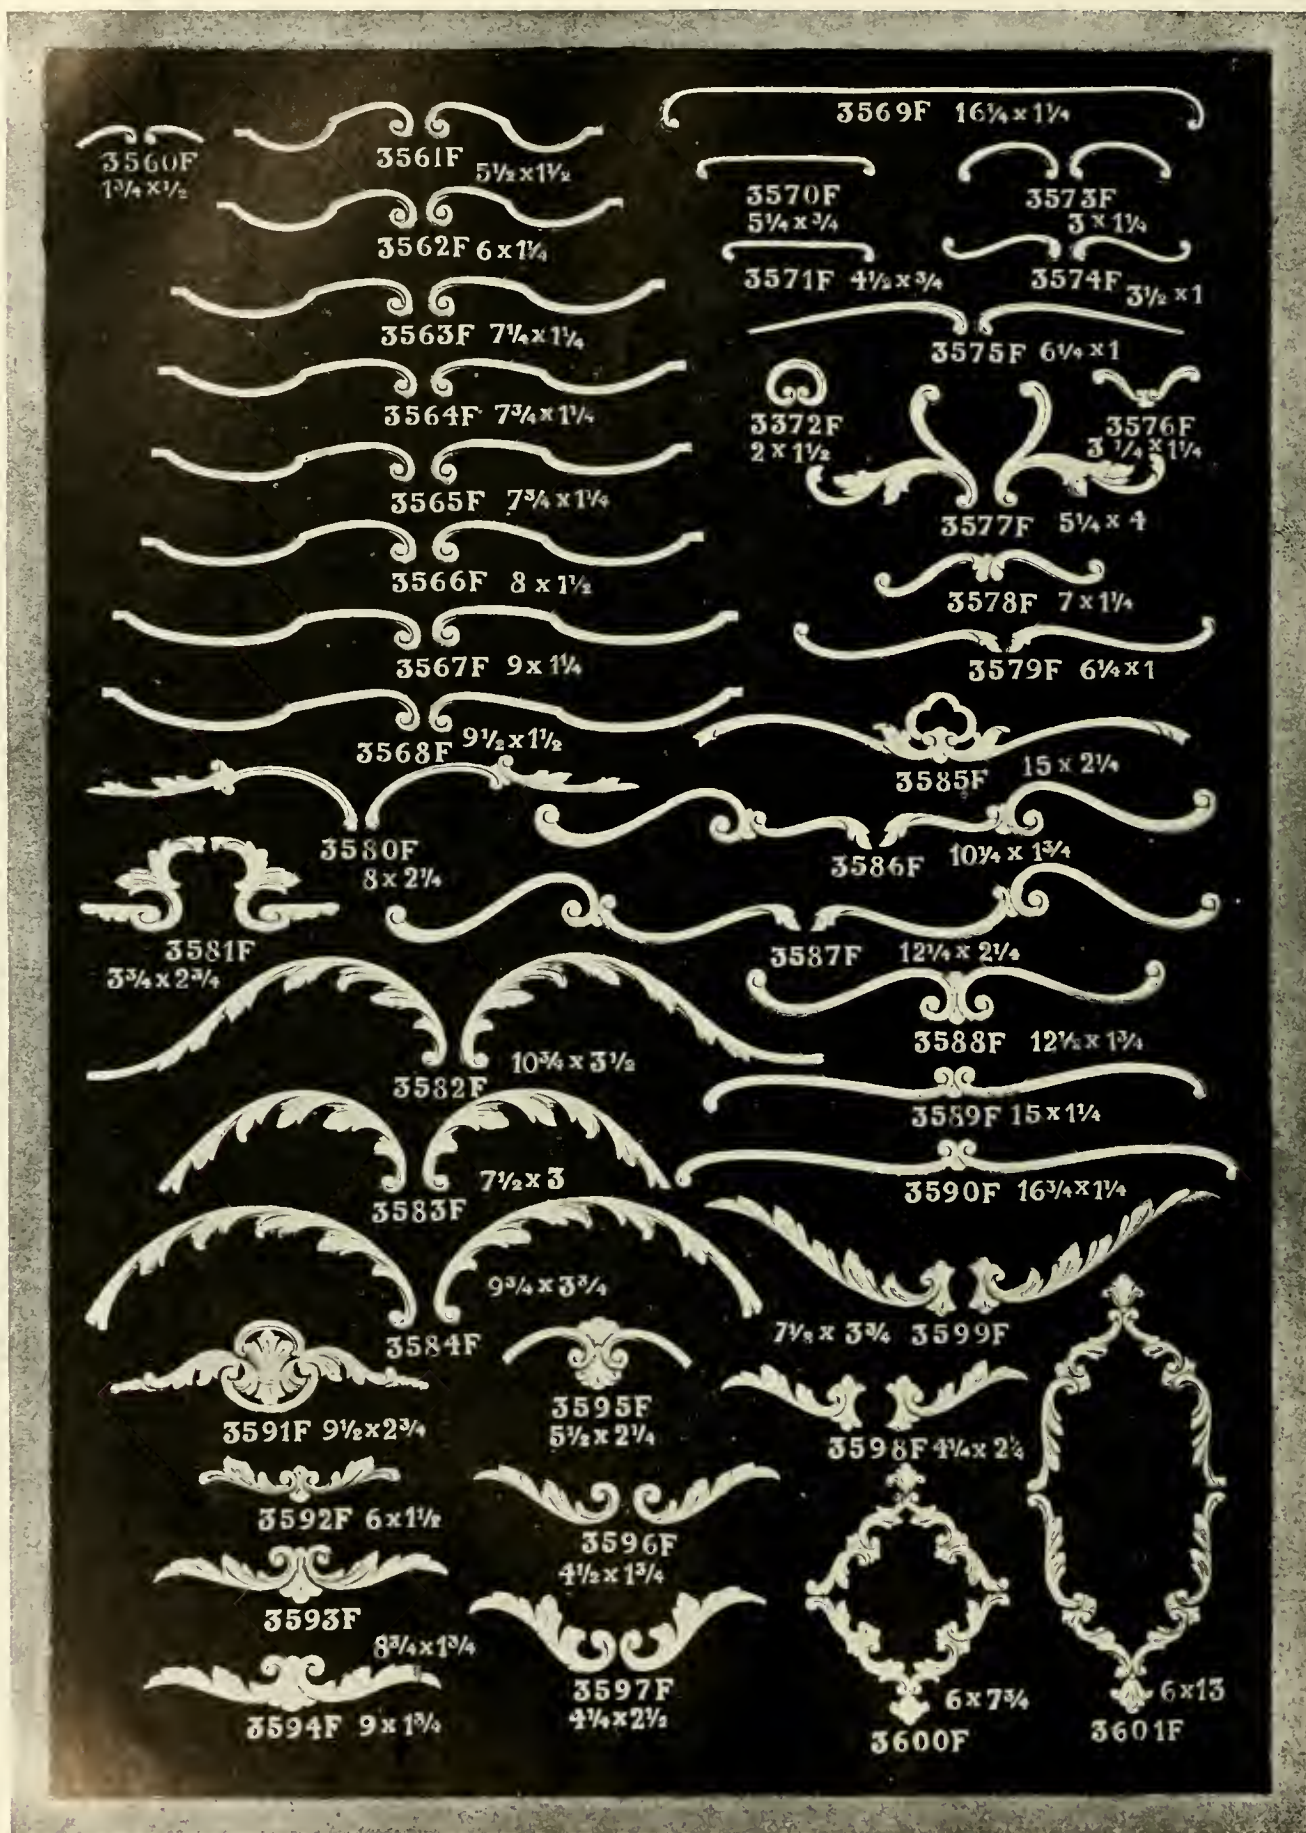 3560F
1¾ x ½
3561F 5½ x 1½
3562F 6 x 1¼
3563F 7¼ x 1¼
3564F 7¾ x 1¼
3565F 7¾ x 1¼
3566F 8 x 1½
3567F 9 x 1¼
3568F 9½ x 1½
3569F 16¼ x 1¼
3570F
5¼ x ¾
3573F
3 x 1¼
3571F 4½ x ¾
3574F 3½ x 1
3575F 6¼ x 1
3372F
2 x 1½
3576F
3 ¼ x 1¼
3577F 5¼ x 4
3578F 7 x 1¼
3579F 6¼ x 1
3585F 15 x 2¼
3580F
8 x 2¼
3586F 10¼ x 1¾
3581F
3¾ x 2¾
3587F 12¼ x 2¼
3588F 12½ x 1¾
3582F 10¾ x 3½
3589F 15 x 1¼
3583F 7½ x 3
3590F 16¾ x 1¼
3584F 9¾ x 3¾
7⅛ x 3¾ 3599F
3591F 9½ x 2¾
3595F
5½ x 2¼
3598F 4¼ x 2¼
3592F 6 x 1½
3596F
4½ x 1¾
3593F
8¾ x 1¾
3594F 9 x 1¾
3597F
4¼ x 2½
6 x 7¾
3600F
6 x 13
3601F